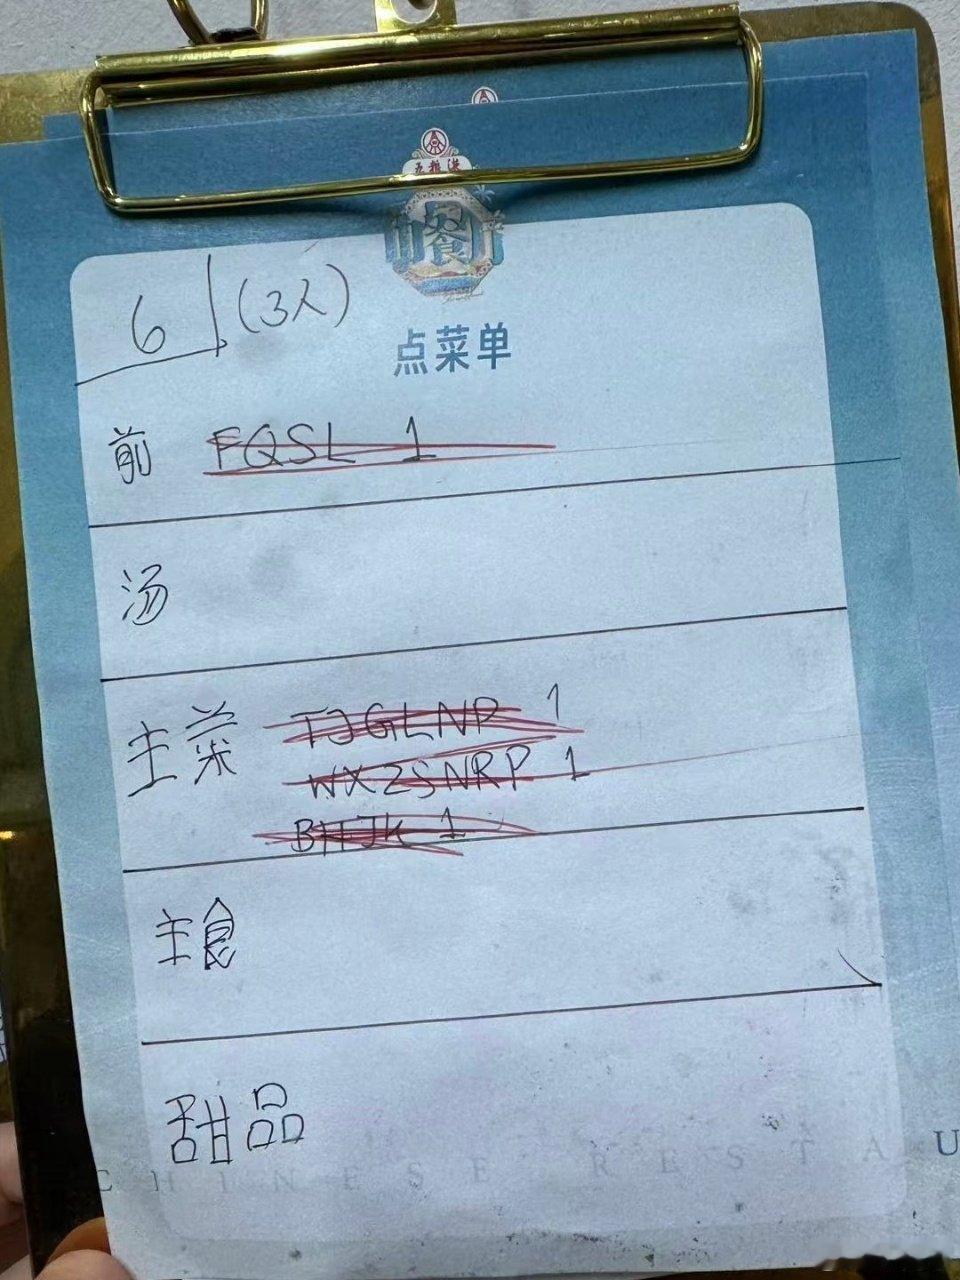 五粮液
中餐厅
点菜单
6 (3人)
前 FQSL 1
汤
主菜 TJGLNP 1
WXZSNRP 1
BHJK 1
主食
甜品
CHINESE RESTAU